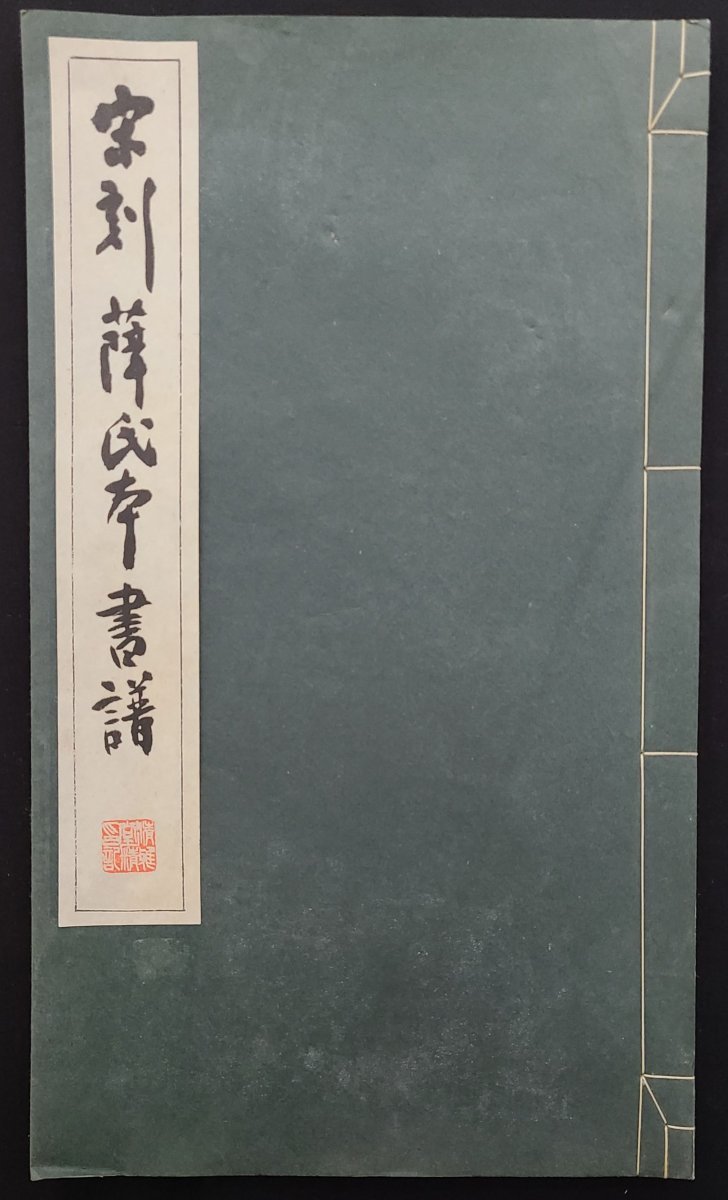 宋刻薛氏本書譜